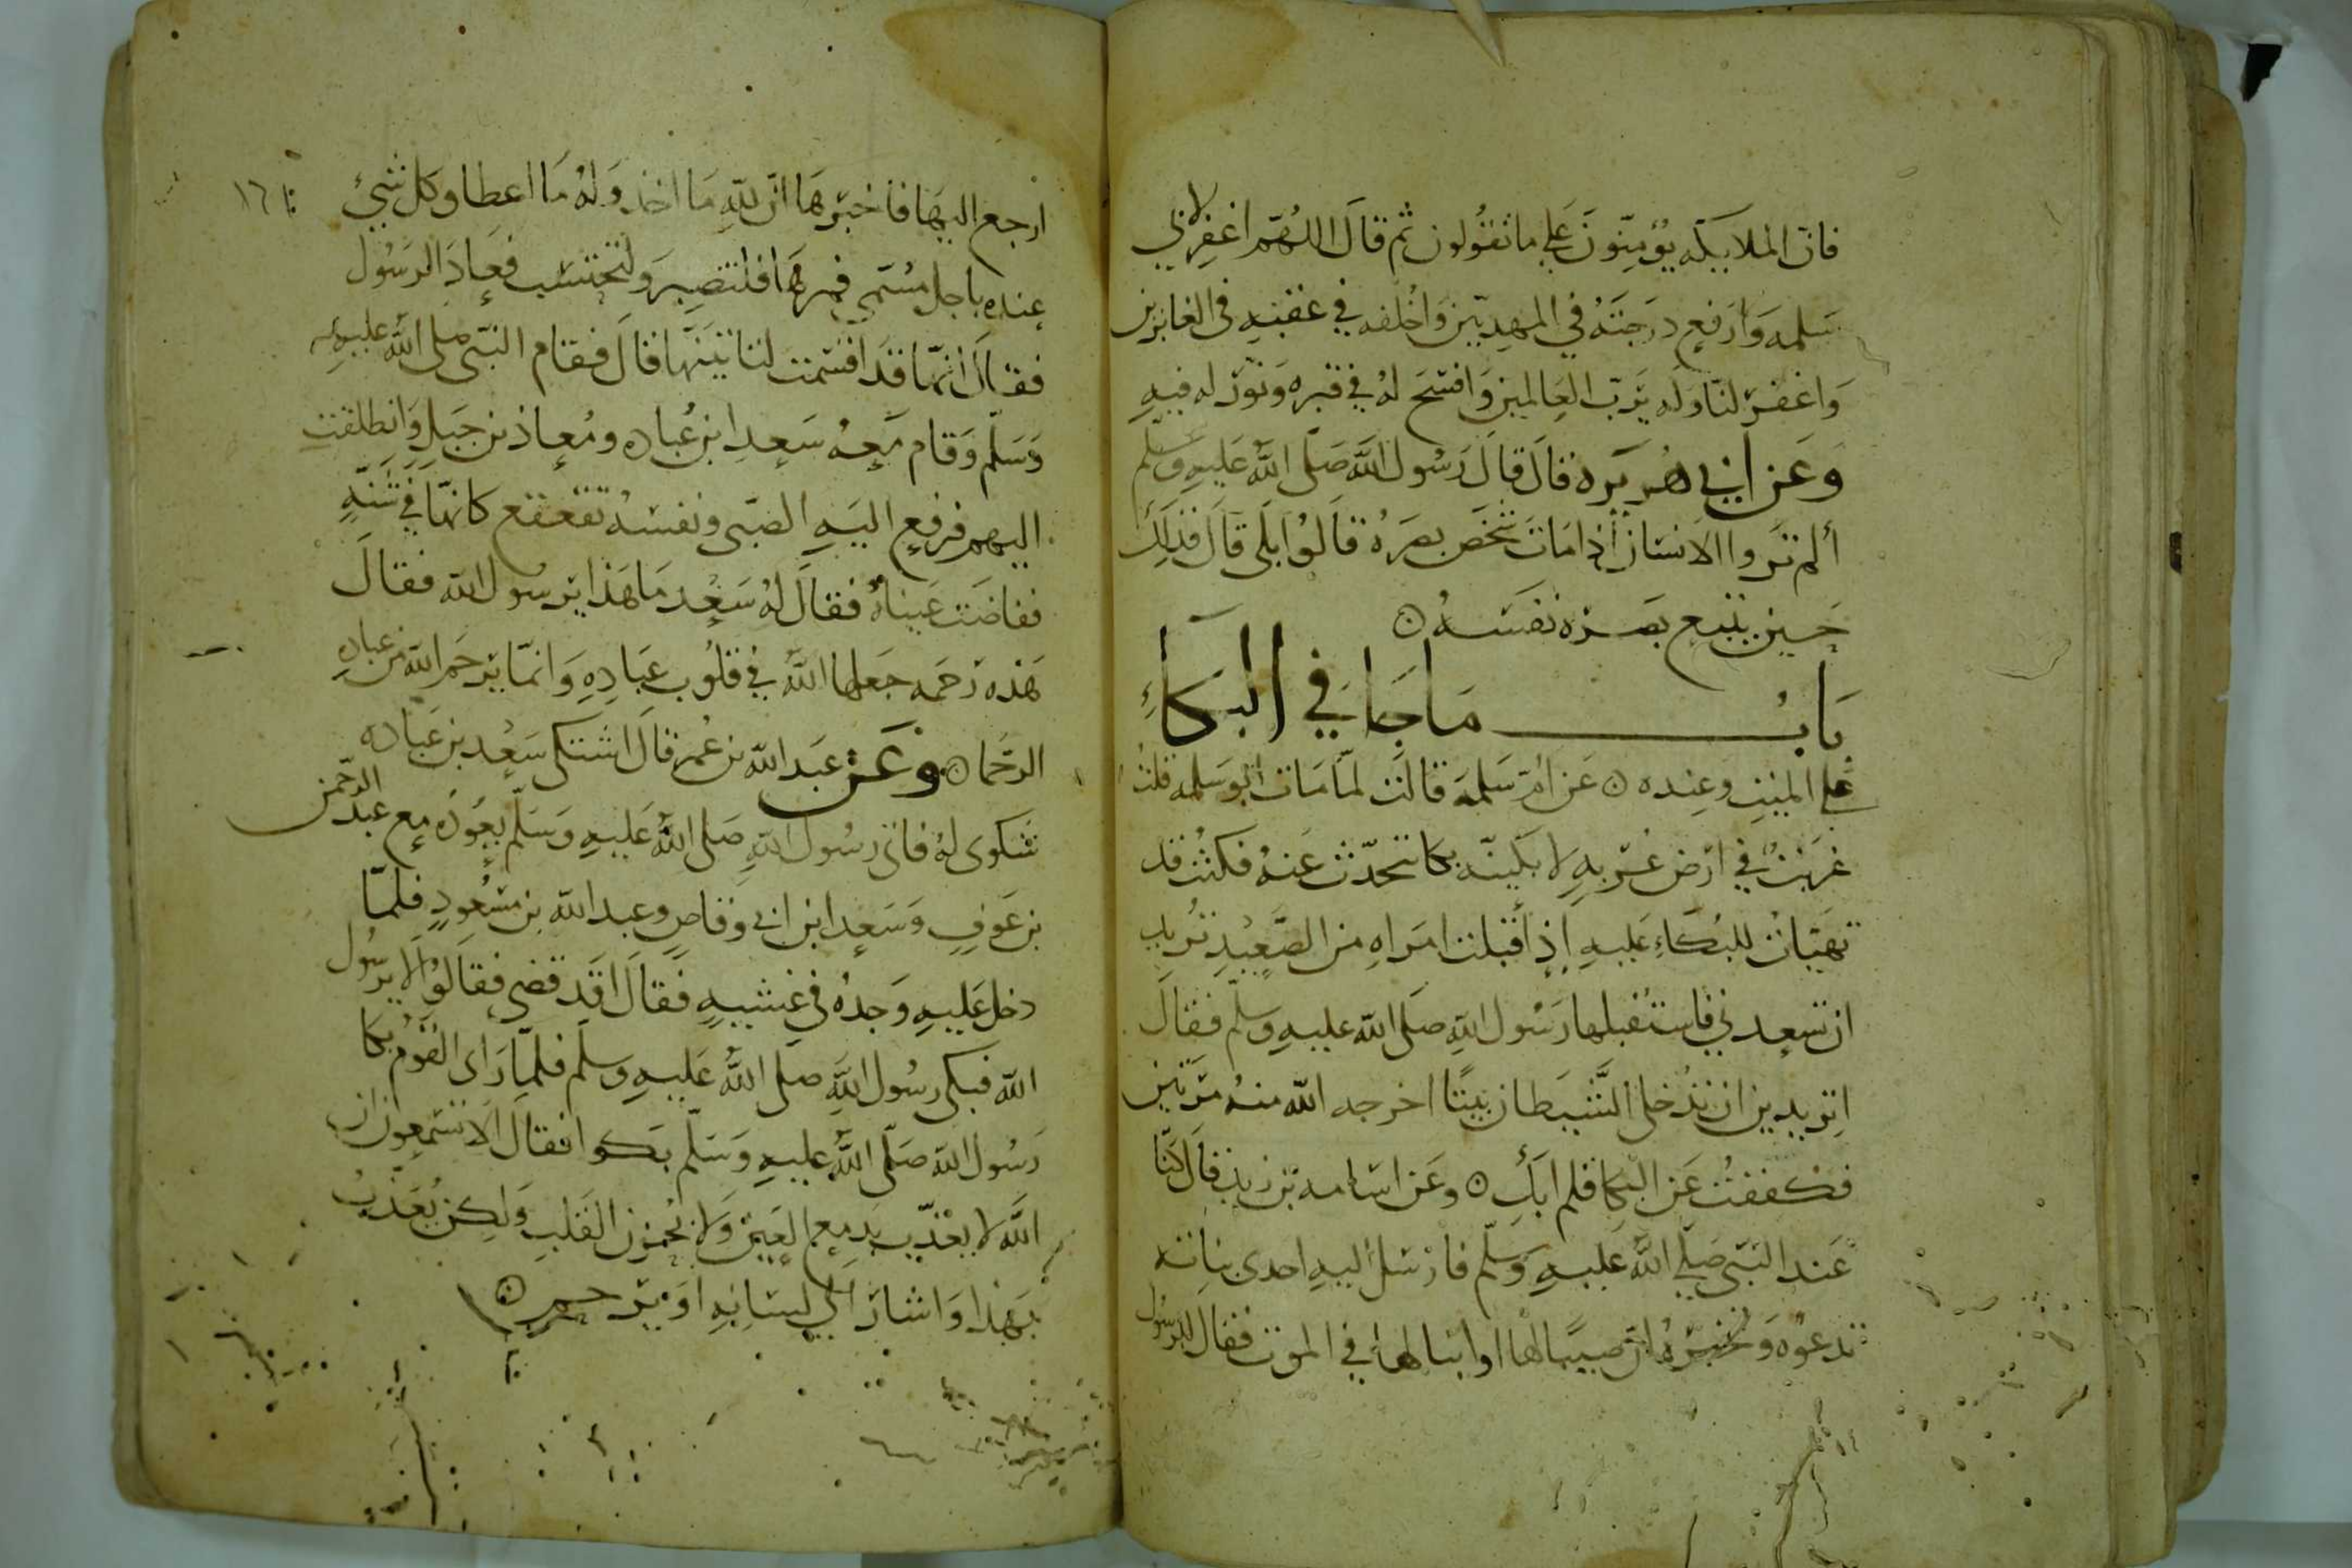 فان الملايكه يؤمنون على ما تقولون ثم قال اللهم اغفر لابي
سلمه وارفع درجته في المهديين واخلفه في عقبه في الغابرين
واغفر لنا وله يرب العالمين وافسح له في قبره ونور له فيه
وعن ابي هريره قال قال رسول الله صلى الله عليه وسلم
ألم تروا الانسان اذا مات شخص بصره قالوا بلى قال فذلك
حين يتبع بصره نفسه ه
باب ما جا في البكاءِ
على الميت وعنده ه عن ام سلمة قالت لما مات ابو سلمه قلت
غريب في ارض غربه لابكينه بكا تتحدث عنه فكنت قد
تهيات للبكاء عليه اذ اقبلت امراه من الصعيد تريد
ان تسعدني فاستقبلها رسول الله صلى الله عليه وسلم فقال
اتريدين ان تدخلي الشيطان بيتا اخرجه الله منه مرتين
فكففت عن البكا فلم ابك ه وعن اسامه بن زيد قال كنا
عند النبي صلى الله عليه وسلم فارسل اليه احدى بناته
تدعوه وتخبره ان صبيا لها او ابنا لها في الموت فقال للرسول
١٦١
ارجع اليها فاخبرها ان لله ما اخذ وله ما اعطا وكل شيء
عنده باجل مسمى فمرها فلتصبر ولتحتسب فعاد الرسول
فقال انها قد اقسمت لتاتينها قال فقام النبي صلى الله عليه
وسلم وقام معه سعد ابن عباده ومعاذ بن جبل وانطلقت
اليهم فرفع اليه الصبي ونفسه تقعقع كانها في شنه
ففاضت عيناه فقال له سعد ما هذا يرسول الله فقال
هذه رحمه جعلها الله في قلوب عباده وانما يرحم الله من عباده
الرحما ه وعن عبد الله بن عمر قال اشتكى سعد بن عباده
شكوى له فاتى رسول الله صلى الله عليه وسلم يعوده مع عبد الرحمن
بن عوف وسعد ابن ابي وقاص وعبد الله بن مسعود فلما
دخل عليه وجده في غشيه فقال اقد قضي فقالوا لا يرسول
الله فبكى رسول الله صلى الله عليه وسلم فلما راى القوم بكا
رسول الله صلى الله عليه وسلم بكوا فقال الا تسمعون ان
الله لا يعذب بدمع العين ولا بحزن القلب ولكن يعذب
بهذا واشار الى لسانه او يرحم ه